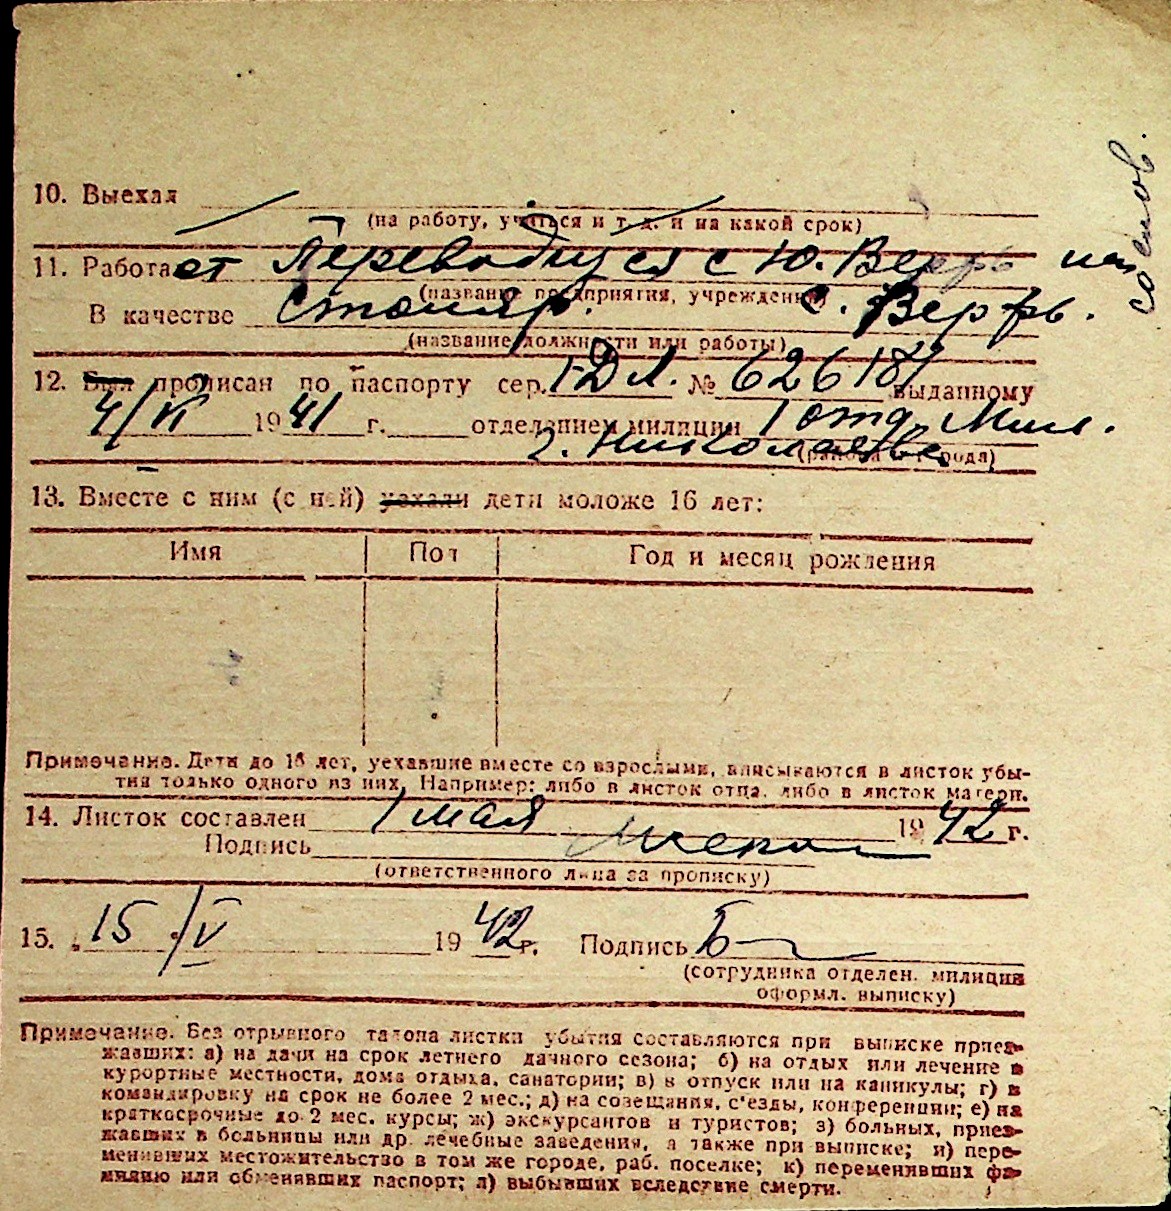 10. Выехал
(на работу, учиться и т. д. и на какой срок)
11. Работает Переводится с Ю. Верфь на
(название предприятия, учреждения)
В качестве Столяр. С. Верфь.
(название должности или работы)
12. Был прописан по паспорту сер. I-ДЛ. № 626187 выданному
4/VI 1941 г. отделением милиции 1 отд. Мил.
г. Николаева
(района и города)
13. Вместе с ним (с ней) уехали дети моложе 16 лет:
Имя Пол Год и месяц рождения
Примечание. Дети до 16 лет, уехавшие вместе со взрослыми, вписываются в листок убы-
тия только одного из них. Например: либо в листок отца, либо в листок матери.
14. Листок составлен 1 мая 1942 г.
Подпись
(ответственного лица за прописку)
15. „15 "/V 1942 г. Подпись
(сотрудника отделен. милиции
оформл. выписку)
Примечание. Без отрывного талона листки убытия составляются при выписке приез-
жавших: а) на дачи на срок летнего дачного сезона; б) на отдых или лечение в
курортные местности, дома отдыха, санатории; в) в отпуск или на каникулы; г) в
командировку на срок не более 2 мес.; д) на совещания, с'езды, конференции; е) на
краткосрочные до 2 мес. курсы; ж) экскурсантов и туристов; з) больных, приез-
жавших в больницы или др. лечебные заведения, а также при выписке; и) пере-
менивших местожительство в том же городе, раб. поселке; к) переменивших фа-
милию или обменявших паспорт; л) выбывших вследствие смерти.